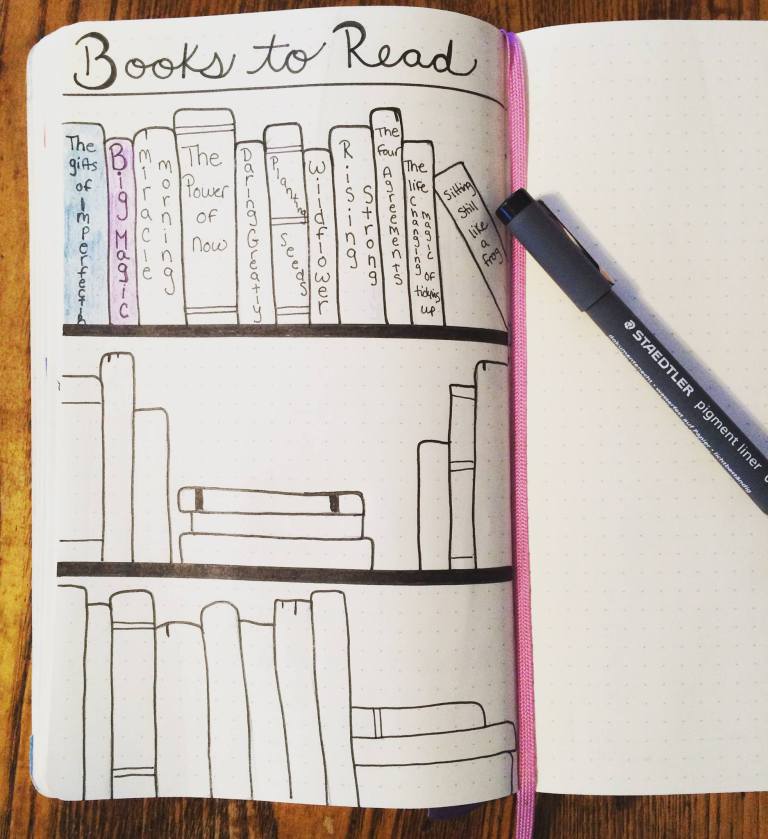 Books to Read
The
gifts
of
Big Magic
miracle
morning
The
Power
of
Now
Daring Greatly
Planting
Seeds
Wildflower
Rising
Strong
The
Four
Agreements
The
life
Changing
magic of
tidying
up
Sitting
Still
like
a
frog
STAEDTLER pigment liner
dokumentenecht • wasserfest auf Papier • lichtbeständig